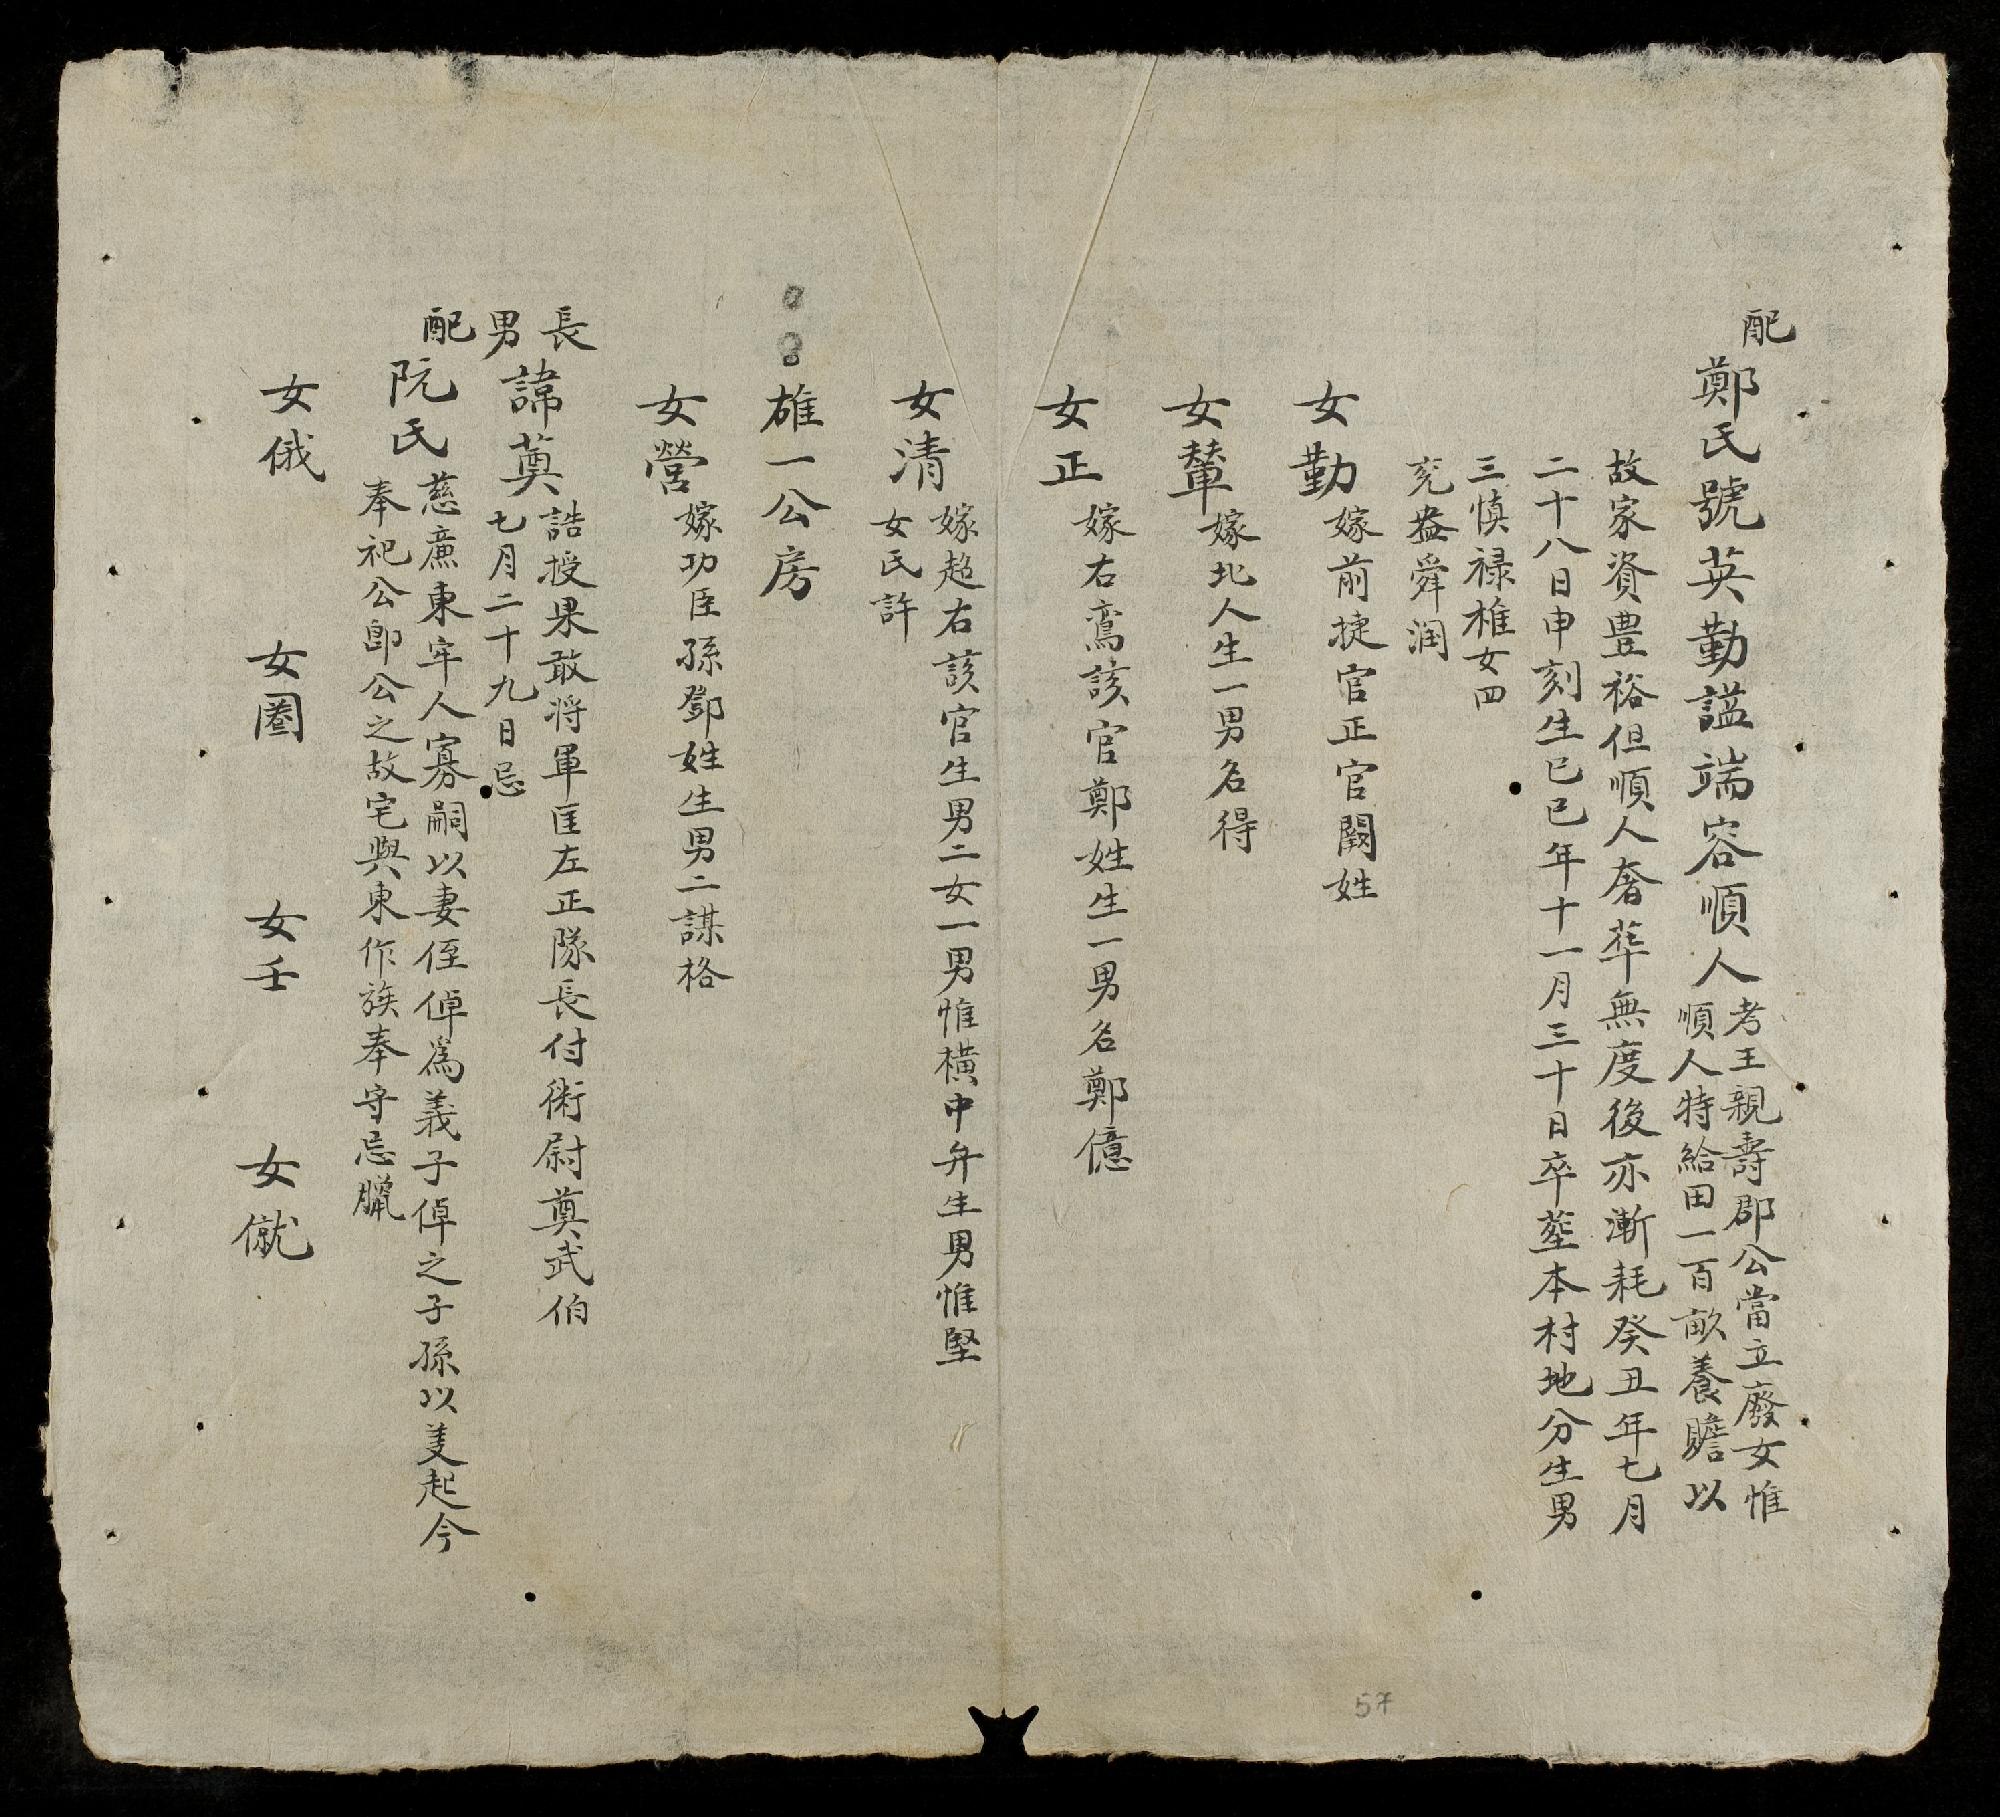 配
鄭氏號英勤謚端容順人
考王親壽郡公當立廢女惟
順人特給田一百畝養贍以
故家資豊裕但順人奢華無度後亦漸耗癸丑年七月
二十八日申刻生已巳年十一月三十日卒塟本村地分生男
三慎禄椎女四
兖益舜润
女勤
嫁前捷官正官闕姓
女輦
嫁北人生一男名得
女正
嫁右鸞該官鄭姓生一男名鄭億
女清
嫁超右該官生男二女一男惟橫中弁生男惟堅
女氏許
雄一公房
女營
嫁功臣孫鄧姓生男二謀格
長男
諱奠
誥授果敢将軍匡左正隊長付衛尉奠武伯
七月二十九日忌
配
阮氏
慈廉東牢人寡嗣以妻侄倬為義子倬之子孫以夏起今
奉祀公即公之故宅與東作族奉守忌臘
女俄
女圈
女壬
女僦
57